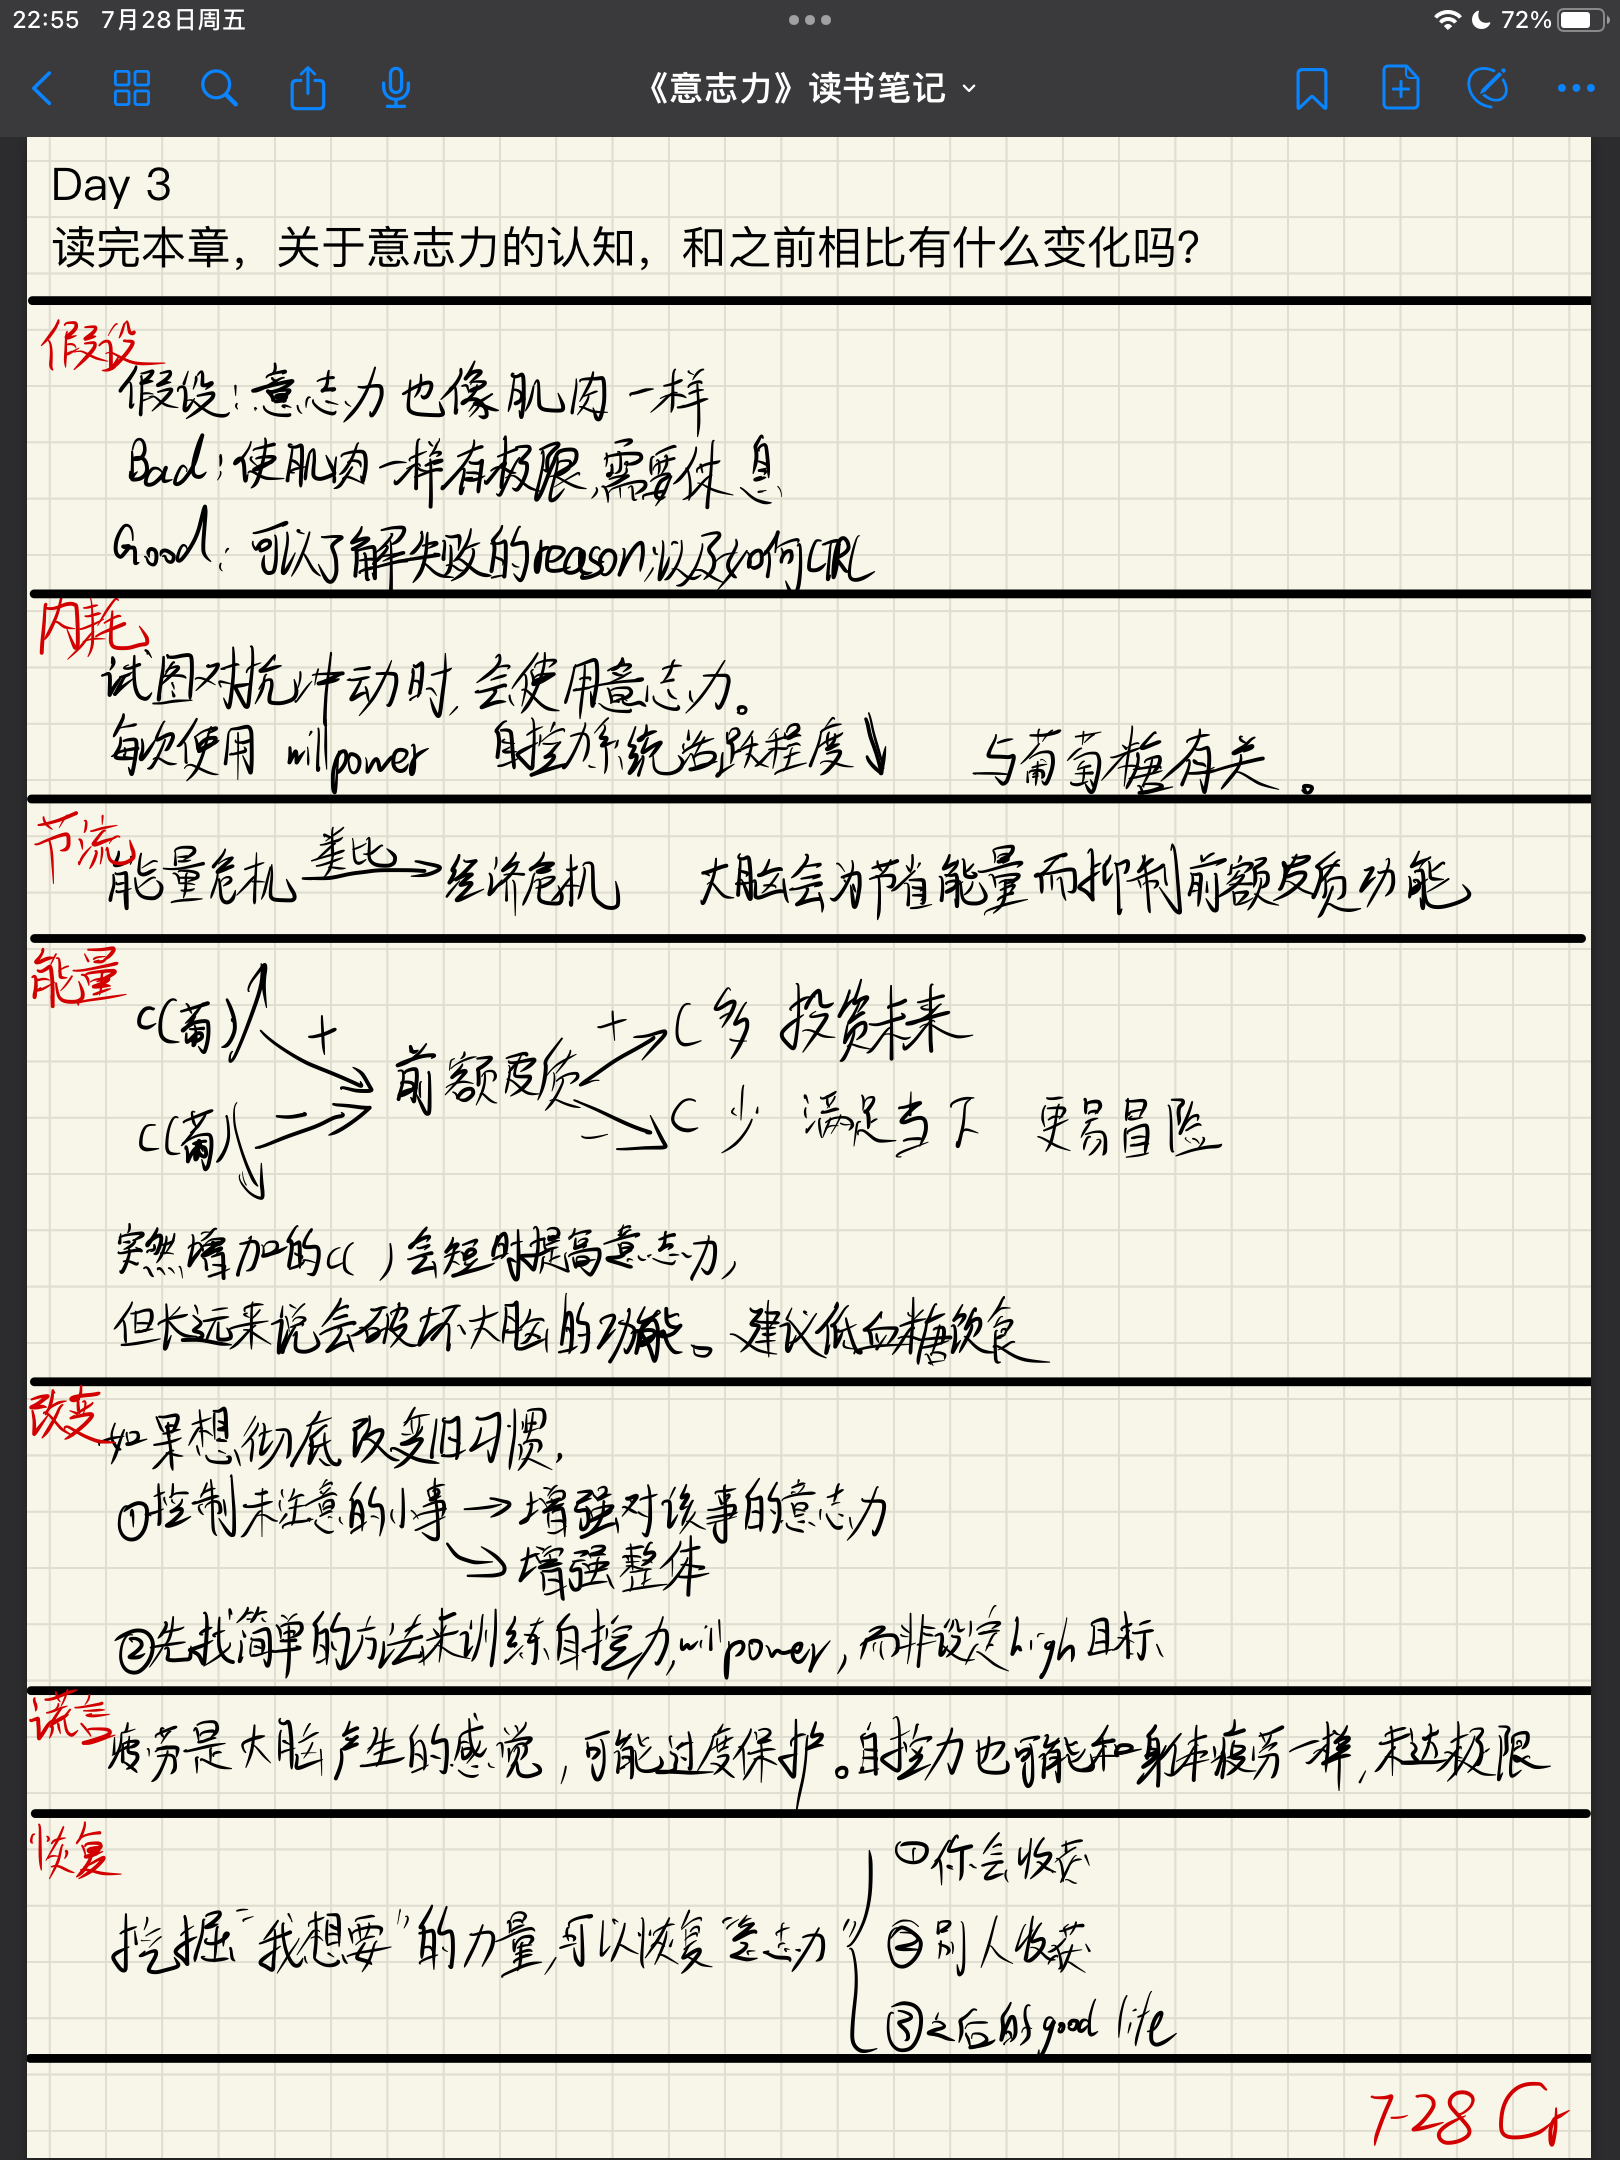 22:55 7月28日周五 72%
《意志力》读书笔记
Day 3
读完本章，关于意志力的认知，和之前相比有什么变化吗？
假设
假设：意志力也像肌肉一样
Bad：使肌肉一样有极限，需要休息
Good：可以了解失败的reason以及如何CTRL
内耗
试图对抗冲动时，会使用意志力。
每次使用 willpower 自控力系统活跃程度↓ 与葡萄糖有关。
节流
能量危机 类比→ 经济危机 大脑会为节省能量而抑制前额皮质功能
能量
C(葡)↑ + + C多 投资未来
前额皮质
C(葡)↓ - - C少 满足当下 更易冒险
突然增加的C( )会短时提高意志力，
但长远来说会破坏大脑的功能。建议低血糖饮食
改变
如果想彻底改变旧习惯，
①控制未注意的小事 → 增强对该事的意志力
→ 增强整体
②先找简单的方法来训练自控力，willpower，而非设定high目标
谎言
疲劳是大脑产生的感觉，可能过度保护。自控力也可能和身体疲劳一样，未达极限
恢复
①你会收获
挖掘“我想要”的力量，可以恢复“意志力”
②别人收获
③之后的good life
7-28 Cr